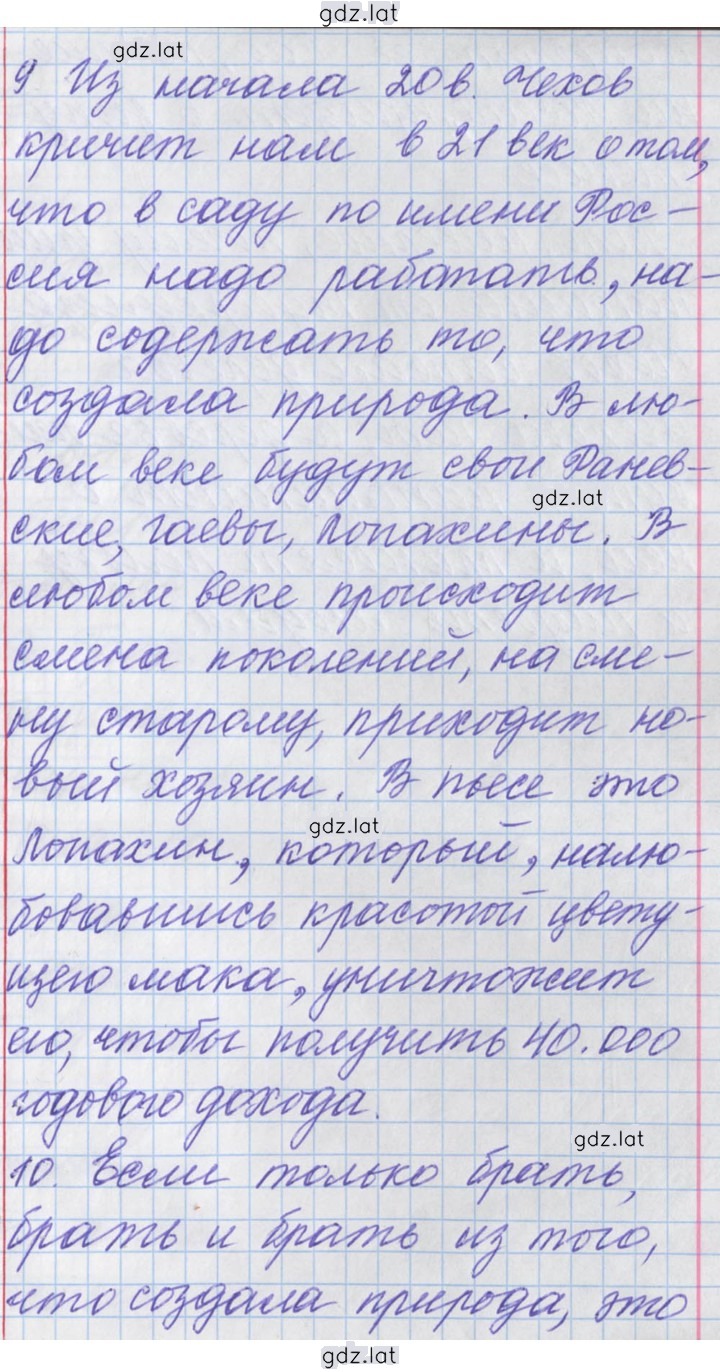 gdz.lat
gdz.lat
9 Из начала 20 в. Чехов
кричит нам в 21 век о том,
что в саду по имени Рос-
сия надо работать, на-
до содержать то, что
создала природа. В лю-
бом веке будут свои Ранев-
gdz.lat
ские, Гаевы, Лопахины. В
любом веке происходит
смена поколений, на сме-
ну старому, приходит но-
вый хозяин. В пьесе это
gdz.lat
Лопахин, который, налю-
бовавшись красотой цвету-
щего мака, уничтожит
его, чтобы получить 40.000
годового дохода.
gdz.lat
10. Если только брать,
брать и брать из того,
что создала природа, это
gdz.lat